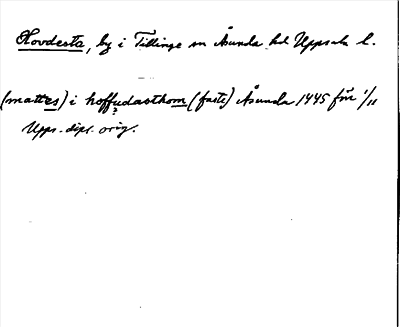 Hovdesta, by i Tillinge sn Åsunda hd Uppsala l.
(mattes) i hoffudasthom (faste) Åsunda 1445 för 1/11
?
Upps. dipl. orig.